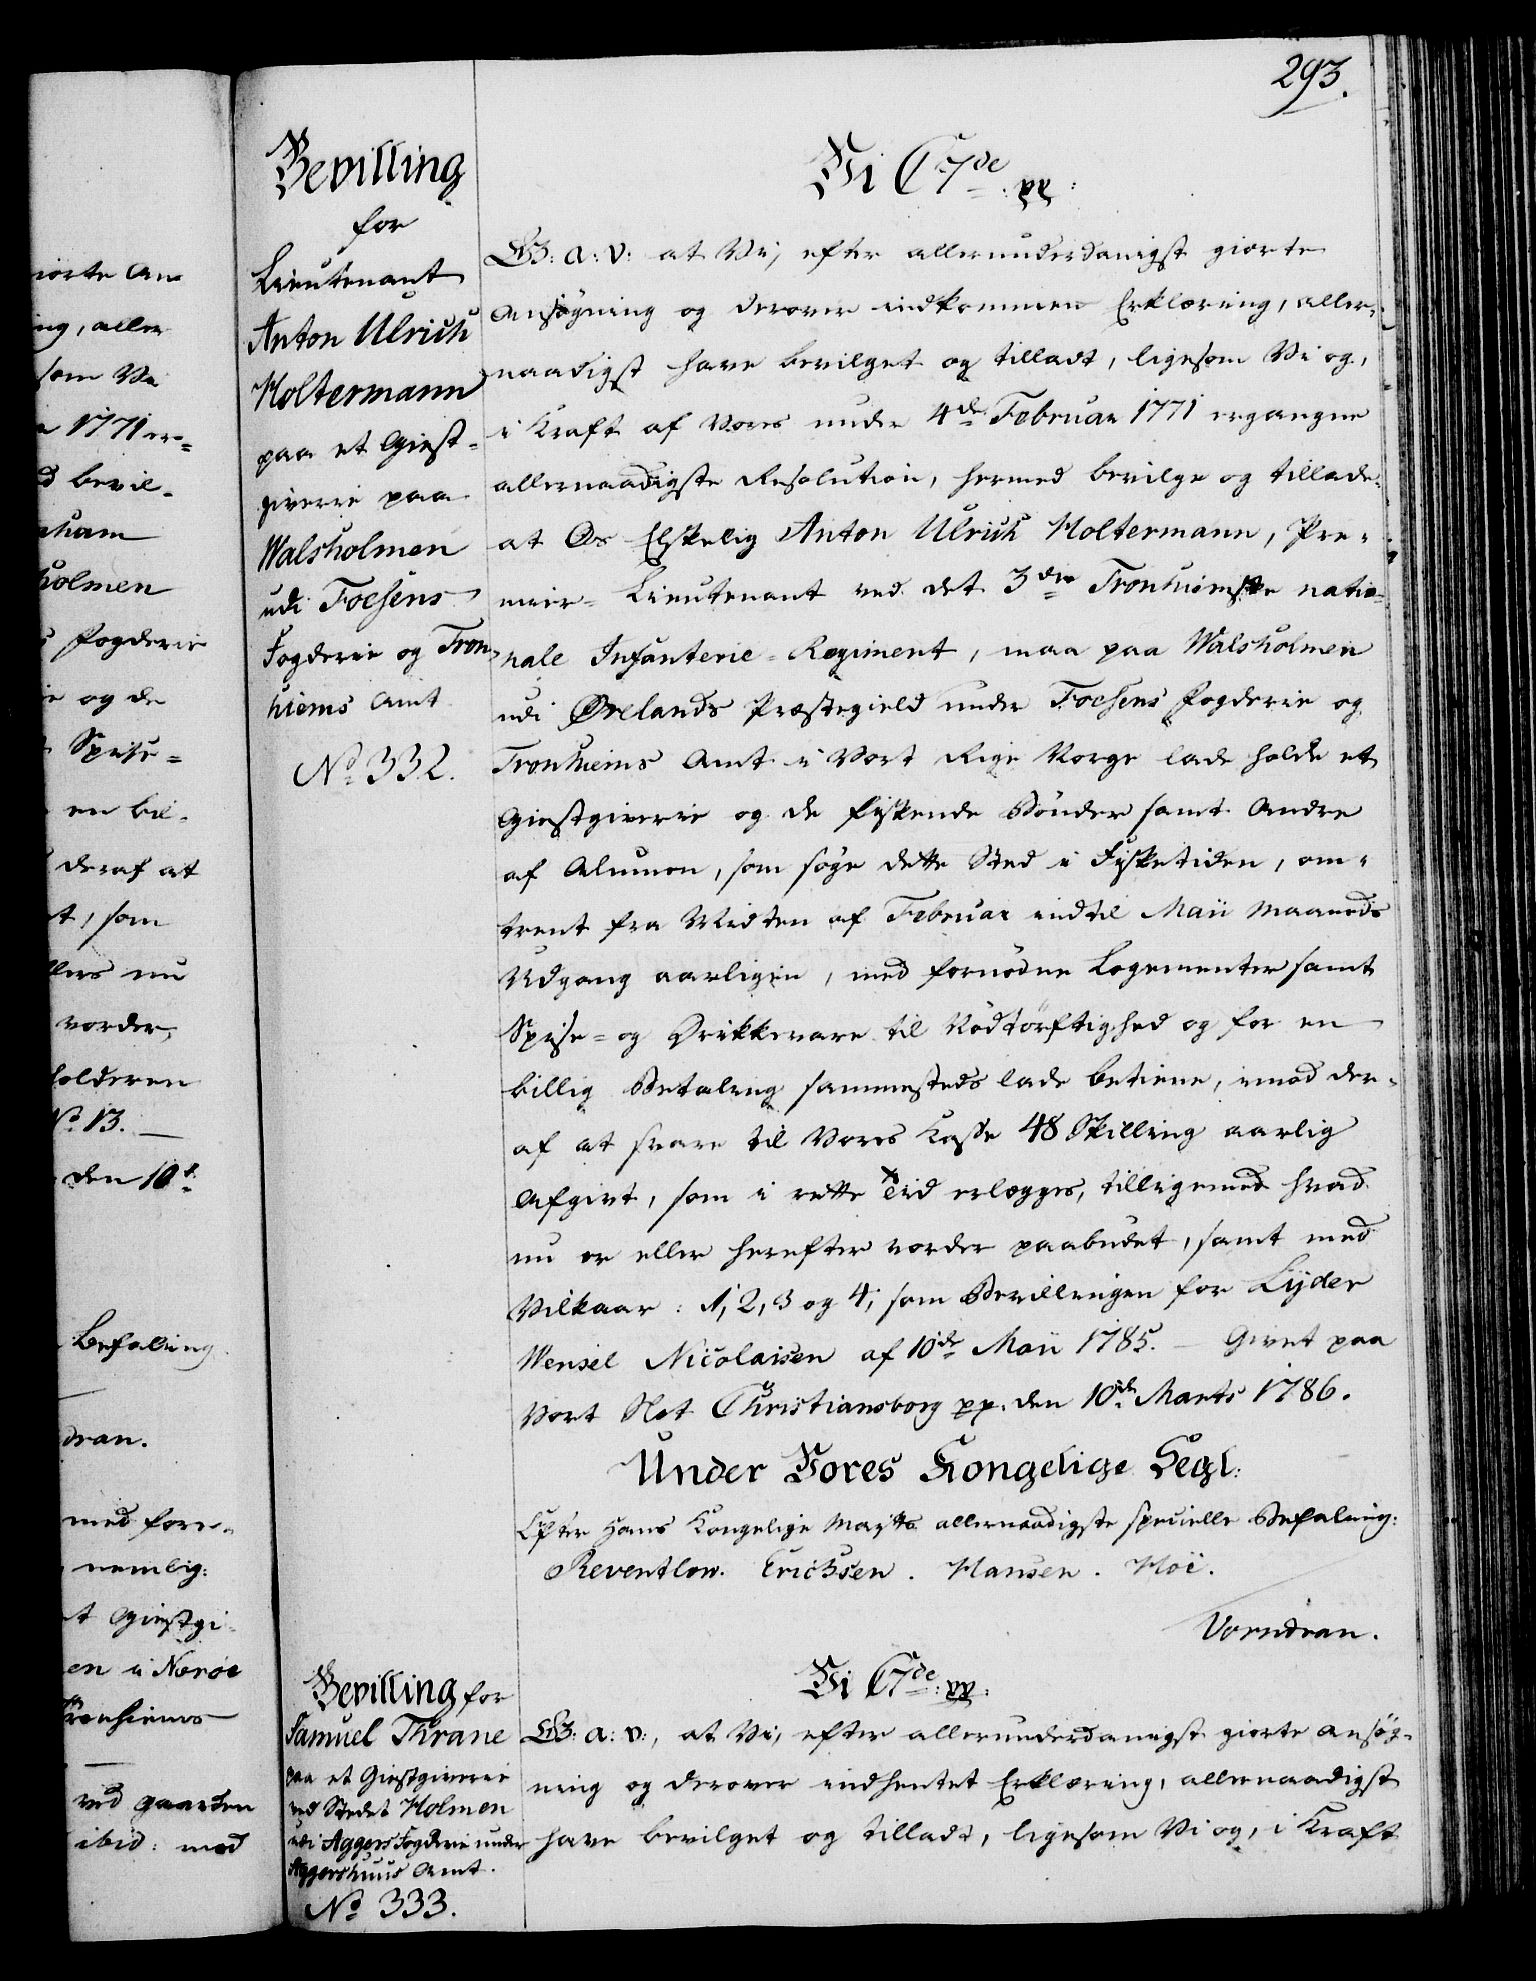 293.
Bevilling
for
Lieutenant
Anton Ulrich
Holtermann
paa et Giest-
giverie paa
Walsholmen
udi Foesens
Fogderie og Tron-
hiems Amt
No 332.
Vi C 7de: pp:
G: a: v: at Vi, efter allerunderdanigst giorte
Ansøgning og derover indkommen Erklæring, aller-
naadigst have bevilget og tilladt, ligesom Vi og,
i Kraft af Vores under 4de Februar 1771 ergangne
allernaadigste Resolution, hermed bevilge og tillade,
at Os Elskelig Anton Ulrich Holtermann, Pre-
mier-Lieutenant ved det 3die Tronhiemske natio-
nale Infanterie-Regiment, maa paa Walsholmen
udi Ørelands Præstegield under Foesens Fogderie og
Tronhiems Amt i Vort Rige Norge lade holde et
Giestgiverie og de fiskende Bönder samt Andre
af Almuen, som søge dette Sted i Fisketiden, om-
trent fra Midten af Februar indtil Maii Maaneds
Udgang aarligen, med fornødne Logementer samt
Spise- og Drikkevare til Nödtörftighed og for en
billig Betaling sammesteds lade betiene, imod der-
af at svare til Vores Kasse 48 Skilling aarlig
Afgivt, som i rette Tid erlægges, tilligemed hvad
nu er eller herefter vorder paabudet, samt med
Vilkaar: 1, 2, 3 og 4, som Bevillingen for Lyder
Wensel Nicolaisen af 10de Maii 1785. – Givet paa
Vort Slot Christiansborg pp. den 10de Marts 1786.
Under Vores Kongelige Segl:
Efter Hans Kongelige Maytts allernaadigste specielle Befaling:
Reventlow. Erichsen. Hansen. Höe.
Vorndran.
Bevilling for
Samuel Thrane
paa et Giestgiverie
ved Stedet Holmen
udi Aggers Fogderie under
Aggershuus Amt.
No 333.
Vi C 7de: pp:
G: a: v:, at Vi, efter allerunderdanigst giorte Ansøg-
ning og derover indhentet Erklæring, allernaadigst
have bevilget og tilladt, ligesom Vi og, i Kraft
iorte An-
ing, aller-
som Vi
1771 er-
bevil-
holmen
Fogderie
og de
Spise-
en bil-
deraf at
som
nu
vorder,
holderen
No 13.
den 10
Befaling
dran.
med fore-
nemlig:
et Giestgi-
en i Nærøe
Tronhiems
ved Gaarden
ibid: med